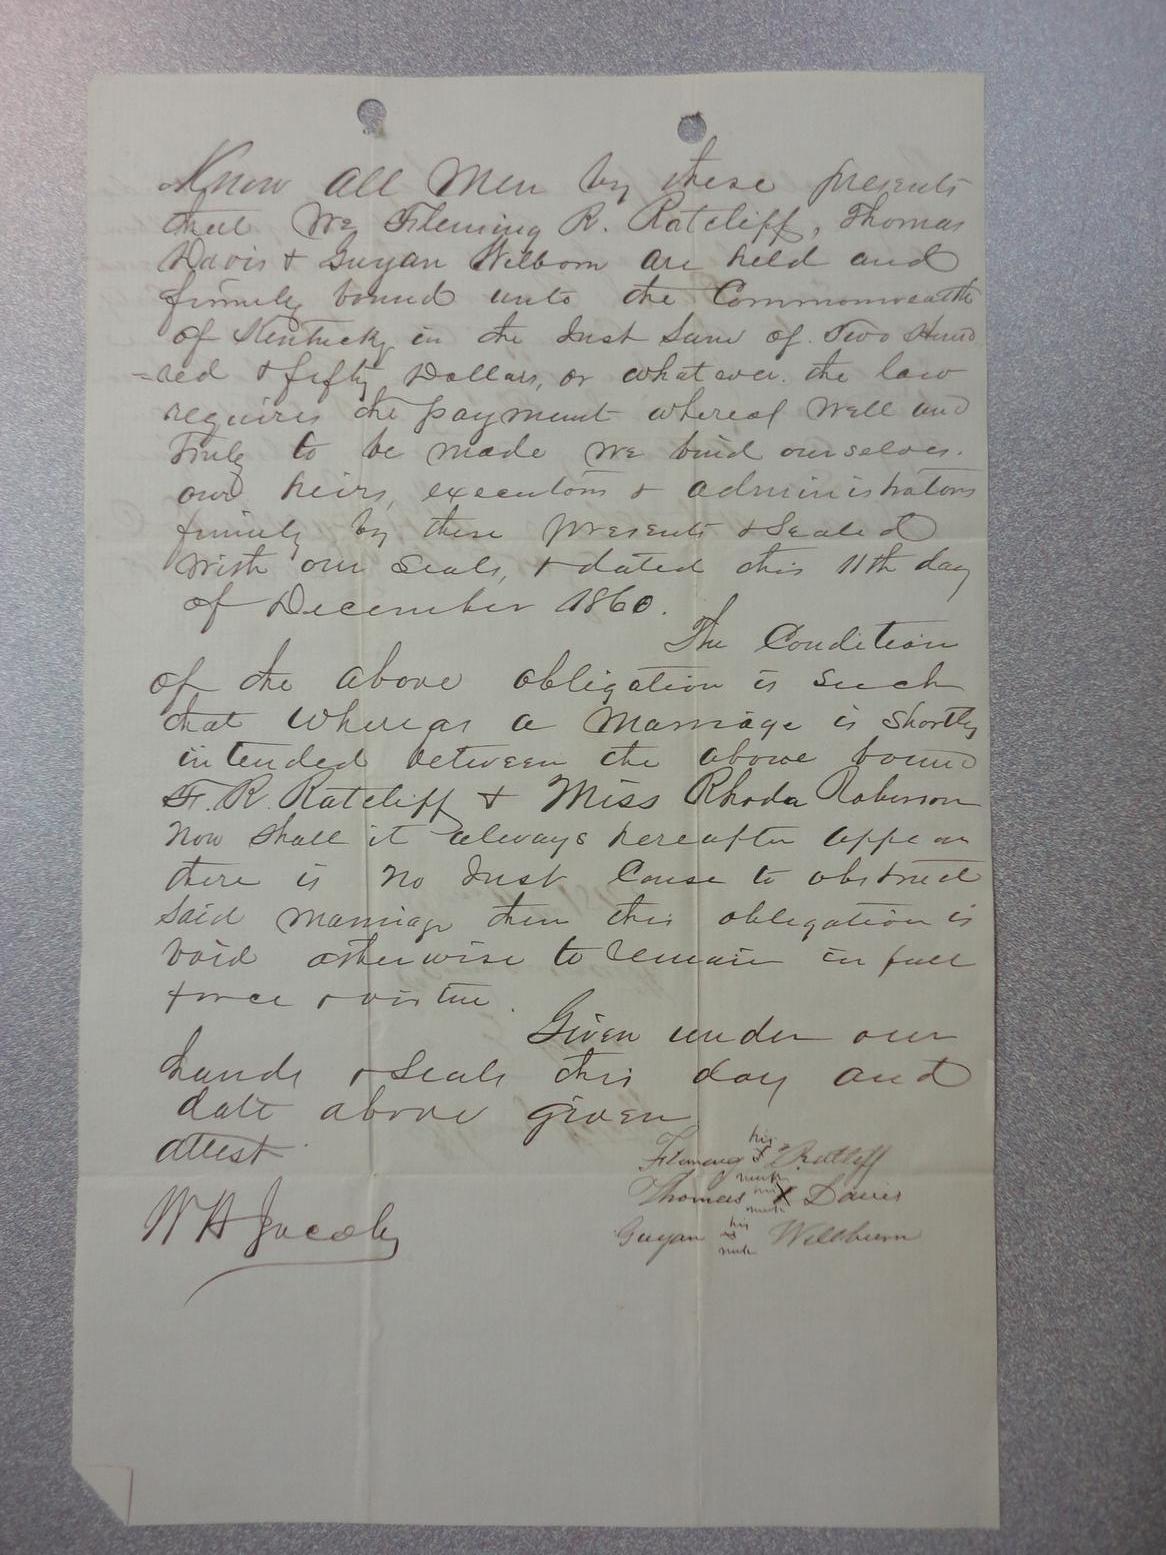 Know all Men by these presents
that We Fleming R. Ratcliff, Thomas
Davis & Guyan Wilborn are held and
firmly bound unto the Commonwealth
of Kentucky in the Just Sum of Two Hund
=red & fifty Dollars, or whatever the law
requires the payment whereof Well and
Truly to be made we bind ourselves.
our heirs, executors & administrators
firmly by these presents & Sealed
With our Seals, & dated this 11th day
of December 1860.
The Condition
of the above obligation is such
that whereas a Marriage is shortly
intended between the above bound
F. R. Ratcliff & Miss Rhoda Roberson
Now shall it always hereafter appear
there is no Just Cause to obstruct
said marriage then this obligation is
void otherwise to remain in full
force & virtue.
Given under our
hands & seals this day and
date above given
attest
his
Fleming X Ratliff
mark
his
Thomas X Davis
mark
his
Guyan X Willburn
mark
W A Jacoby